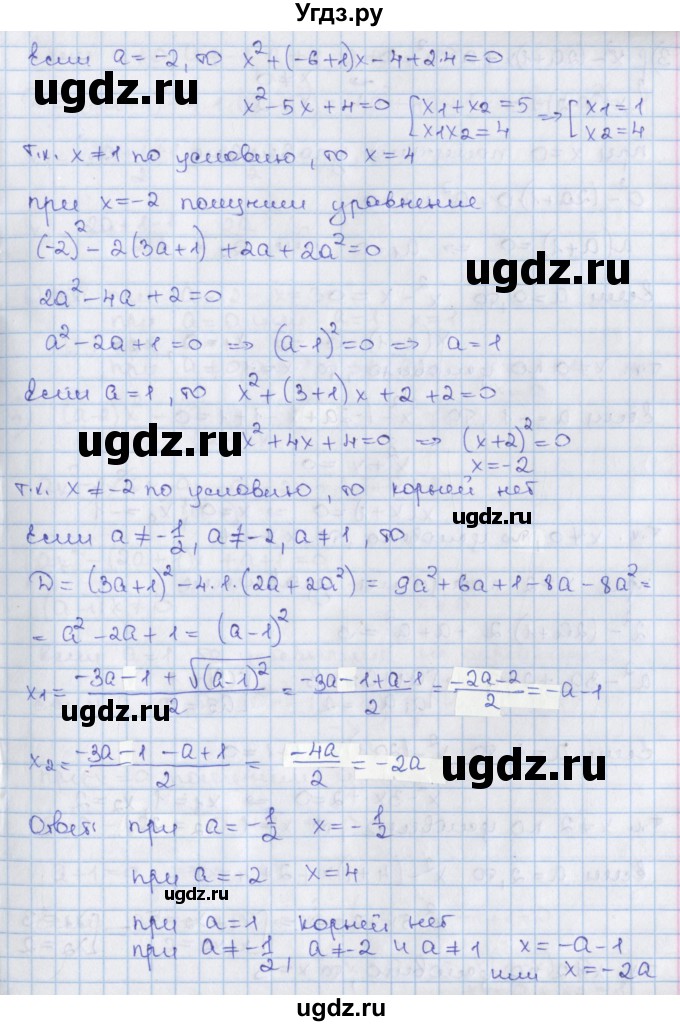 Угдз.ру
Если a = -2, то x² + (-6+1)x - 4 + 2·4 = 0
ugdz.ru
x² - 5x + 4 = 0 [x1 + x2 = 5 x1x2 = 4 => [x1 = 1 x2 = 4
т.к. x ≠ 1 по условию, то x = 4
при x = -2 получим уравнение
(-2)² - 2(3a+1) + 2a + 2a² = 0
ugdz.ru
2a² - 4a + 2 = 0
a² - 2a + 1 = 0 => (a-1)² = 0 => a = 1
Если a = 1, то x² + (3+1)x + 2 + 2 = 0
ugdz.ru
x² + 4x + 4 = 0 => (x+2)² = 0
x = -2
т.к. x ≠ -2 по условию, то корней нет
Если a ≠ -1/2, a ≠ -2, a ≠ 1, то
ugdz.ru
D = (3a+1)² - 4·1·(2a+2a²) = 9a² + 6a + 1 - 8a - 8a² =
= a² - 2a + 1 = (a-1)²
x1 = (-3a-1+√(a-1)²)/2 = (-3a-1+a-1)/2 = (-2a-2)/2 = -a-1
ugdz.ru
x2 = (-3a-1-a+1)/2 = (-4a)/2 = -2a
ugdz.ru
Ответ: при a = -1/2 x = -1/2
при a = -2 x = 4
ugdz.ru
при a = 1 корней нет
при a ≠ -1/2, a ≠ -2 и a ≠ 1 x = -a-1
или x = -2a
ugdz.ru
ugdz.ru